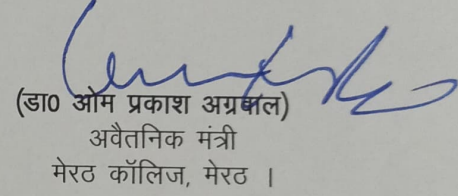 (डा0 ओम प्रकाश अग्रवाल)
अवैतनिक मंत्री
मेरठ कॉलिज, मेरठ ।